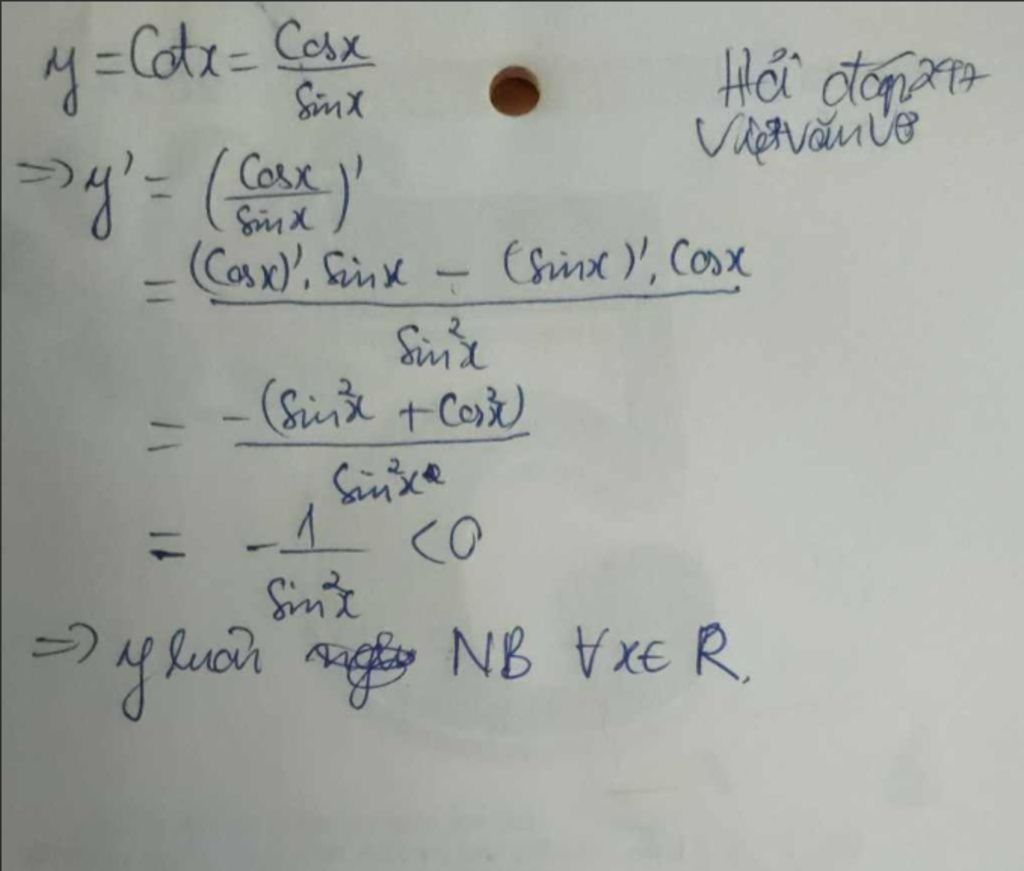 y = Cotx = Cosx / Sinx
Hỏi đáp 247
Việt Văn Võ
=> y' = (Cosx / Sinx)'
= ((Cosx)'. Sinx - (Sinx)'. Cosx) / Sin²x
= -(Sin²x + Cos²x) / Sin²x
= -1 / Sin²x < 0
=> y luôn NB ∀x∈ R.